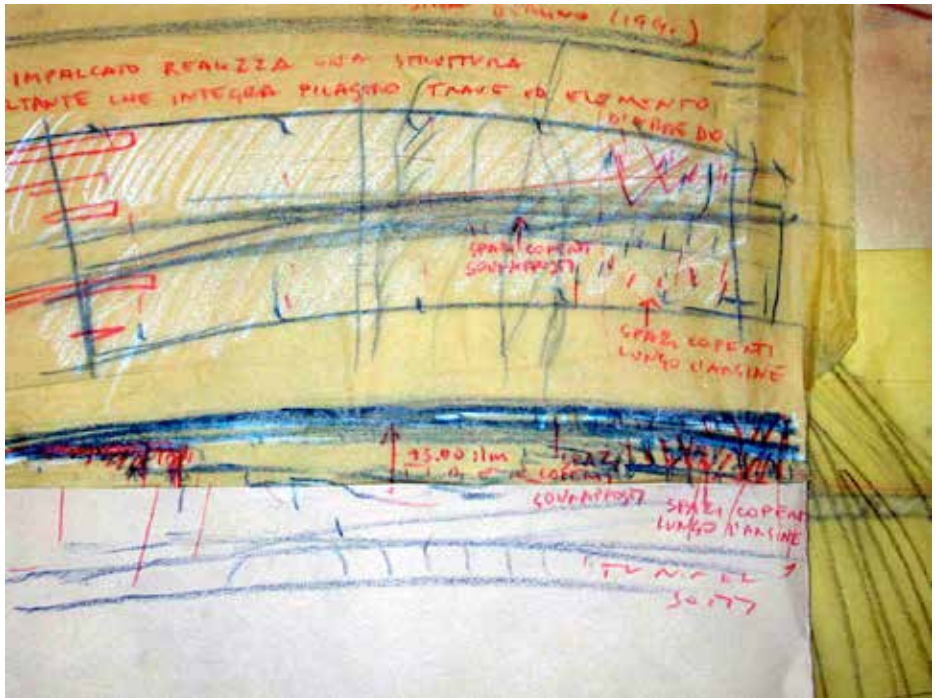 (199.)
IMPALCATO REALIZZA UNA STRUTTURA
LTANTE CHE INTEGRA PILASTRO TRAVE ED ELEMENTO
D'ARREDO
SPAZI COPERTI
SOVRAPPOSTI
SPAZI COPERTI
LUNGO L'ARGINE
93.00 slm
COPERTI
SOVRAPPOSTI
SPAZI COPER
LUNGO L'ARGINE